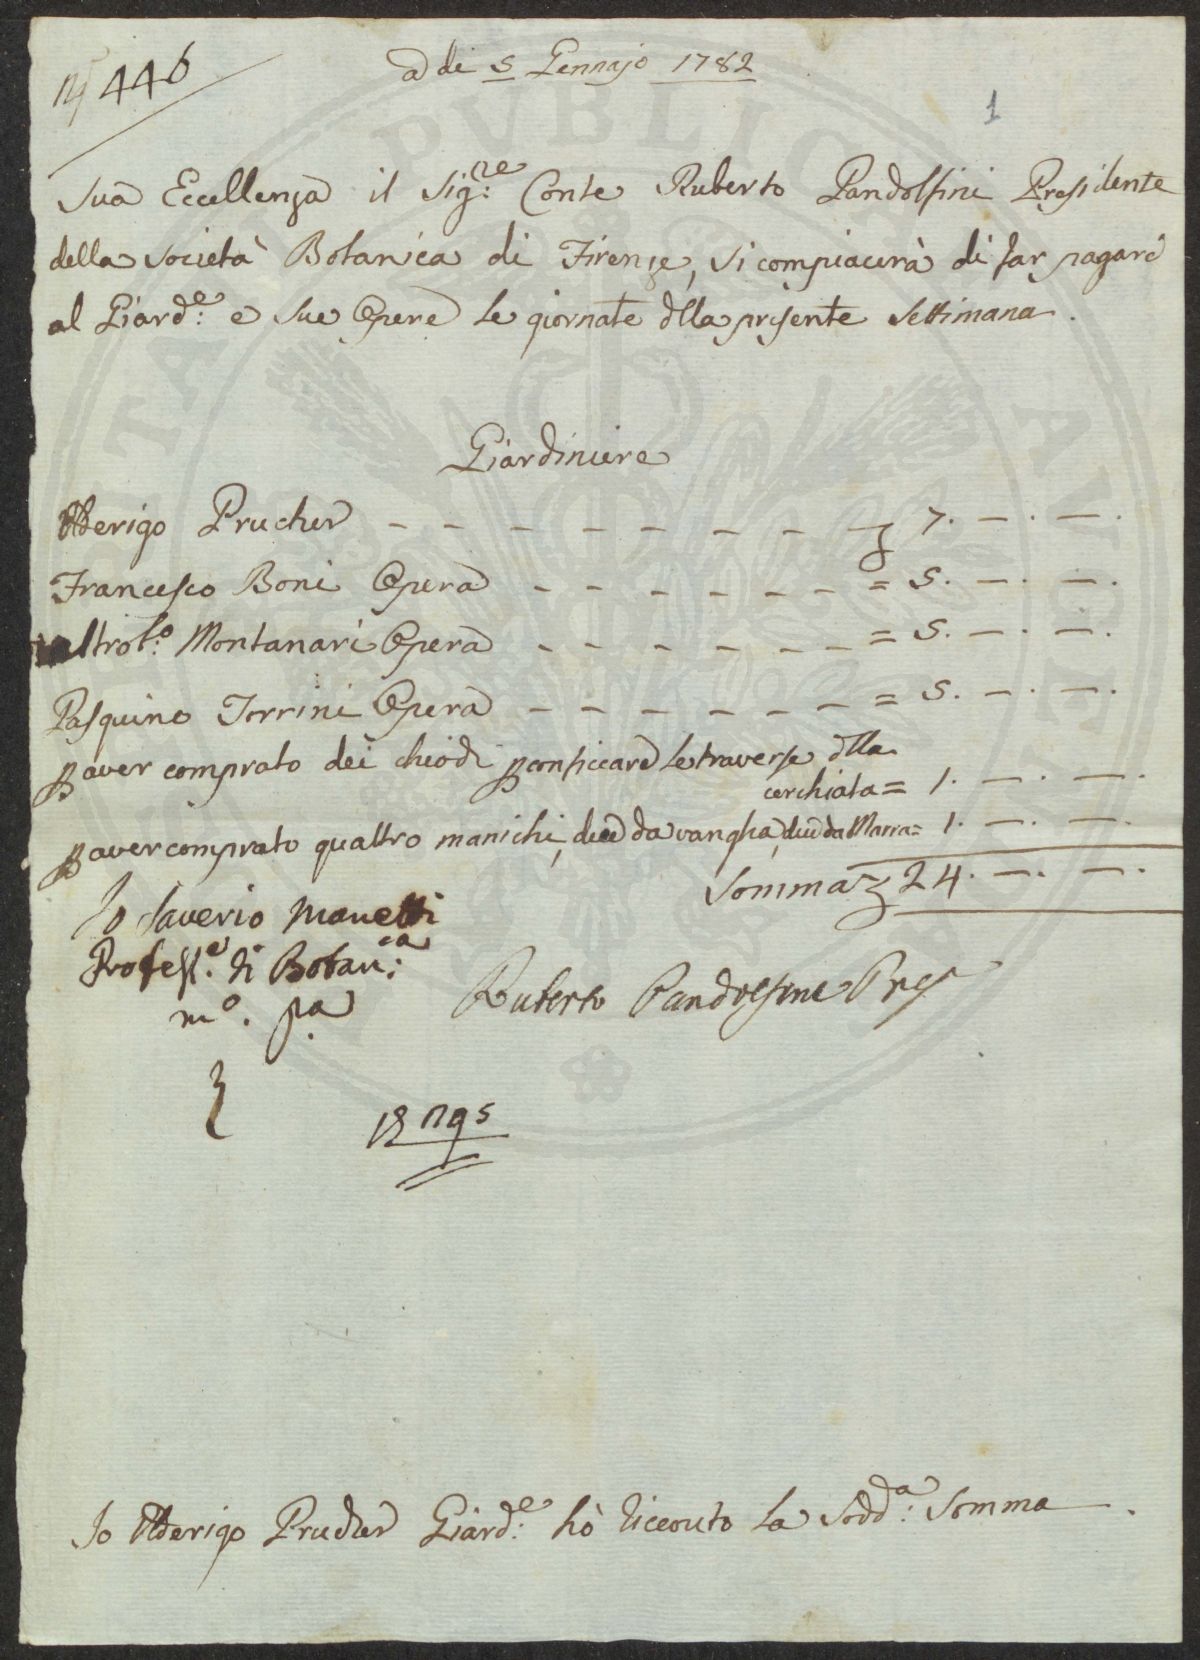 N 446
a di 5 Gennajo 1782
1
Sua Eccellenza il Sig:re Conte Ruberto Pandolfini Presidente
della Società Botanica di Firenze, si compiacerà di far pagare
al Giard:e e sue Opere le giornate dlla presente Settimana.
Giardiniere
Prucher 7. —. —.
Francesco Boni Opera = 5. —. —.
Montanari Opera = 5. —. —.
Pasquino Torrini Opera = 5. —. —.
p aver comprato dei chiodi p conficcare le traverse dlla
cerchiata = 1. —. —.
p aver comprato quattro manichi, due da vangha, due da Marra = 1. —. —.
Somma 24. —. —.
Io Saverio Manetti
Profess:e di Botan:ca
m:o p:a
Ruberto Pandolfini Pres
Io Prucher Giard:e hò riceuto la Sodd:a Somma.